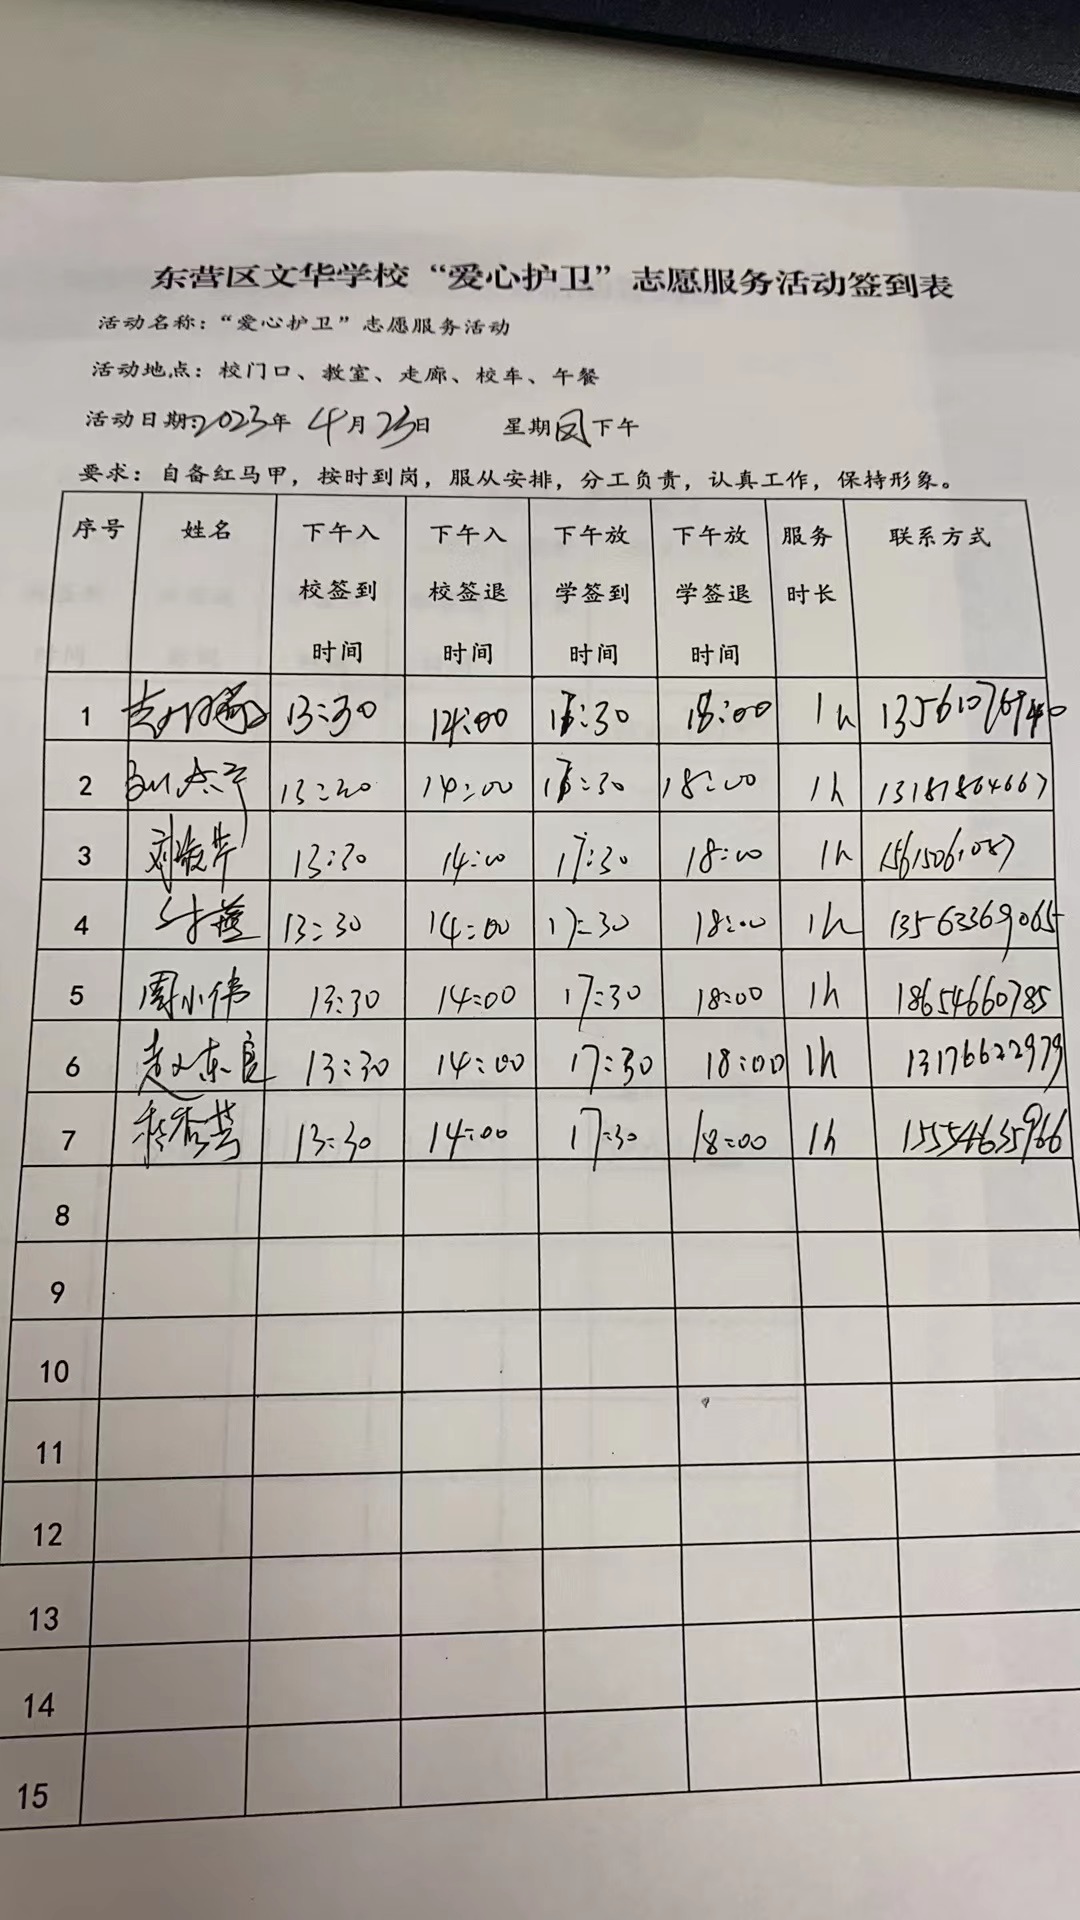 东营区文华学校“爱心护卫”志愿服务活动签到表
活动名称：“爱心护卫”志愿服务活动
活动地点：校门口、教室、走廊、校车、午餐
活动日期：2023年 4月23日 星期 下午
要求：自备红马甲，按时到岗，服从安排，分工负责，认真工作，保持形象。
序号 姓名 下午入校签到时间 下午入校签退时间 下午放学签到时间 下午放学签退时间 服务时长 联系方式
1 13:30 14:00 :30 18:00 1h
2 13:30 14:00 :30 18:00 1h 13181864667
3 13:30 14:00 17:30 18:00 1h 15615061087
4 13:30 14:00 17:30 18:00 1h 13563369065
5 周小伟 13:30 14:00 17:30 18:00 1h 18654660785
6 赵东良 13:30 14:00 17:30 18:00 1h 13176622979
7 13:30 14:00 17:30 18:00 1h 15554635966
8
9
10
11
12
13
14
15